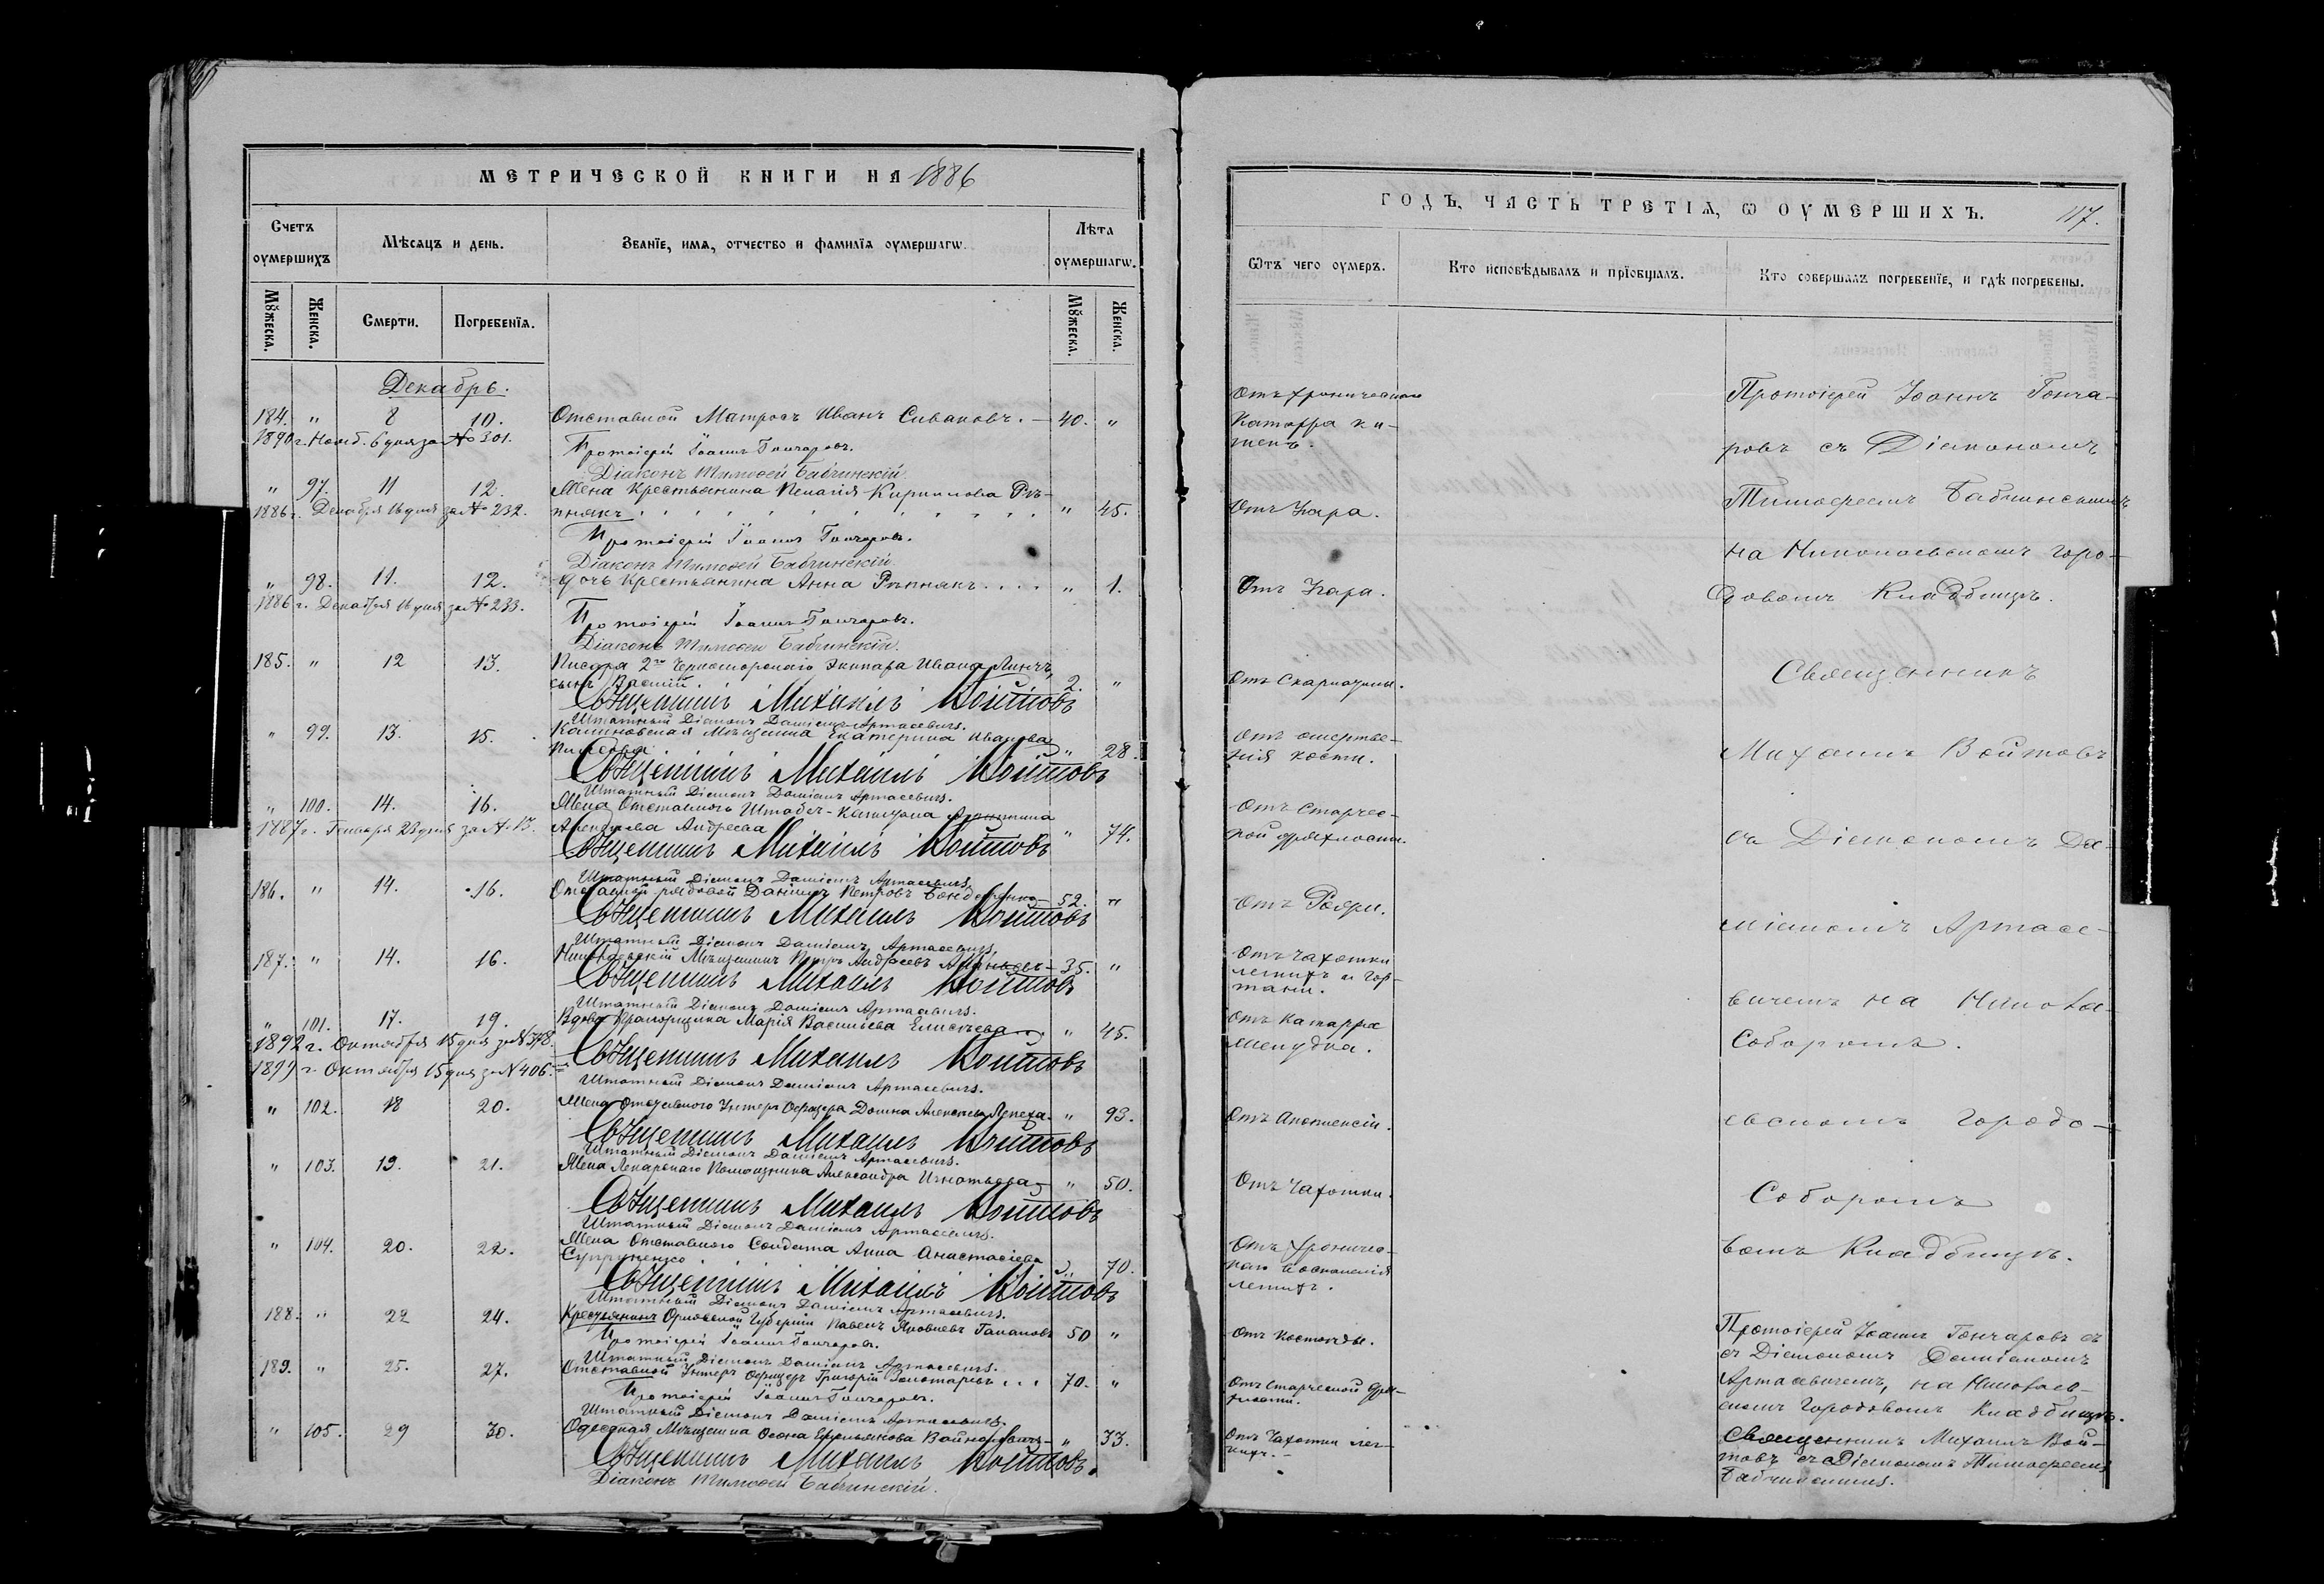 МЕТРИЧЕСКОЙ КНИГИ НА 1886
Счетъ оумершихъ
Мѣсяцъ и день.
Званїе, имя, отчество и фамилїя оумершагѡ.
Лѣта оумершагѡ.
Мꙋжеска.
Женска.
Смерти.
Погребенїя.
Мꙋжеска.
Женска.
Декабрь.
184. " 8 10. Отставной Матросъ Иванъ Сиваковъ. — 40. "
1890 г. Нояб. 6 дня за № 301.
Протоіерей Іоаннъ Гончаровъ.
Діаконъ Тимоѳей Бабчинскій
" 97. 11 12. Жена Крестьянина Пелагія Кириллова Рѣ-
1886 г. Декабря 16 дня за № 232. пнякъ " 45.
Протоіерей Іоаннъ Гончаровъ.
Діаконъ Тимоѳей Бабчинскій
" 98. 11. 12. Дочь Крестьянина Анна Рѣпнякъ.... " 1.
1886 г. Декабря 16 дня за № 233.
Протоіерей Іоаннъ Гончаровъ.
Діаконъ Тимоѳей Бабчинскій.
185. " 12 13. Писаря 2го Черноморскаго Экипажа Ивана
сынъ Василій. 2. "
Священникъ Михаилъ Войтовъ
Штатный Діаконъ Даміанъ Артасевичъ.
" 99. 13. 15. Мѣщанка Екатерина Иванова
" 28.
Священникъ Михаилъ Войтовъ
Штатный Діаконъ Даміанъ Артасевичъ.
" 100. 14. 16. Жена Отставного Штабсъ-Капитана
1887 г. Января 22 дня за № 13. Андреева " 74.
Священникъ Михаилъ Войтовъ
Штатный Діаконъ Даміанъ Артасевичъ
186. " 14. 16. Отставной рядовой Даніилъ Петровъ Бондаренко — 52. "
Священникъ Михаилъ Войтовъ
Штатный Діаконъ Даміанъ Артасевичъ
187. " 14. 16. Мѣщанинъ Петръ Андреевъ — 35. "
Священникъ Михаилъ Войтовъ
Штатный Діаконъ Даміанъ Артасевичъ.
" 101. 17. 19. Вдова Прапорщика Марія Васильева Елисѣева " 45.
1892 г. Октября 15 дня за № 378.
Священникъ Михаилъ Войтовъ
1899 г. Октября 15 дня за № 406.
Штатный Діаконъ Даміанъ Артасевичъ.
" 102. 18 20. Жена Отставного Унтеръ Офицера Домна Алексѣева Лепеха. " 93.
Священникъ Михаилъ Войтовъ
Штатный Діаконъ Даміанъ Артасевичъ.
" 103. 19. 21. Жена Лекарскаго Помощника Александра Игнатьева " 50.
Священникъ Михаилъ Войтовъ
Штатный Діаконъ Даміанъ Артасевичъ.
" 104. 20. 22. Жена Отставного Солдата Анна Анастасіева
Супруненко " 70.
Священникъ Михаилъ Войтовъ
Штатный Діаконъ Даміанъ Артасевичъ.
188. " 22 24. Крестьянинъ Орловской Губерніи Павелъ Яковлевъ 50 "
Протоіерей Іоаннъ Гончаровъ.
Штатный Діаконъ Даміанъ Артасевичъ.
189. " 25. 27. Отставной Унтеръ Офицеръ Григорій Золотаревъ... 70. "
Протоіерей Іоаннъ Гончаровъ.
Штатный Діаконъ Даміанъ Артасевичъ.
" 105. 29 30. Одесская Мѣщанка Емельянова " 33.
Священникъ Михаилъ Войтовъ.
Діаконъ Тимоѳей Бабчинскій.
ГОДЪ, ЧАСТЬ ТРЕТІЯ, Ѡ ОУМЕРШИХЪ. 117.
Ѿтъ чего оумеръ.
Кто исповѣдывалъ и прїобщалъ.
Кто совершалъ погребенїе, и гдѣ погребены.
Отъ хроническаго
Катарра ки-
шекъ.
Отъ Угара.
Отъ Угара.
Отъ Скарлатины.
Отъ омертве-
нія кости.
Отъ Старчес-
кой дряхлости.
Отъ Рожи.
Отъ Чахотки
легкихъ и гор-
тани.
Отъ Катарра
желудка.
Отъ Апоплексіи.
Отъ Чахотки.
Отъ хроничес-
каго воспаленія
легкихъ.
Отъ Костоѣды.
Отъ Старческой дря-
хлости.
Отъ Чахотки лег-
кихъ.
Протоіерей Іоаннъ Гонча-
ровъ съ Діакономъ
Тимоѳеемъ Бабчинскимъ
на Николаевскомъ Горо-
довомъ Кладбищѣ.
Священникъ
Михаилъ Войтовъ
съ Діакономъ Да-
міаномъ Артасе-
вичемъ на Никола-
Соборомъ.
евскомъ Городо-
Соборомъ
вомъ Кладбищѣ.
Протоіерей Іоаннъ Гончаровъ съ
съ Діакономъ Даміаномъ
Артасевичемъ, на Николаев-
скомъ Городовомъ Кладбищѣ.
Священникъ Михаилъ Вой-
товъ съ Діакономъ Тимоѳеемъ
Бабчинскимъ.